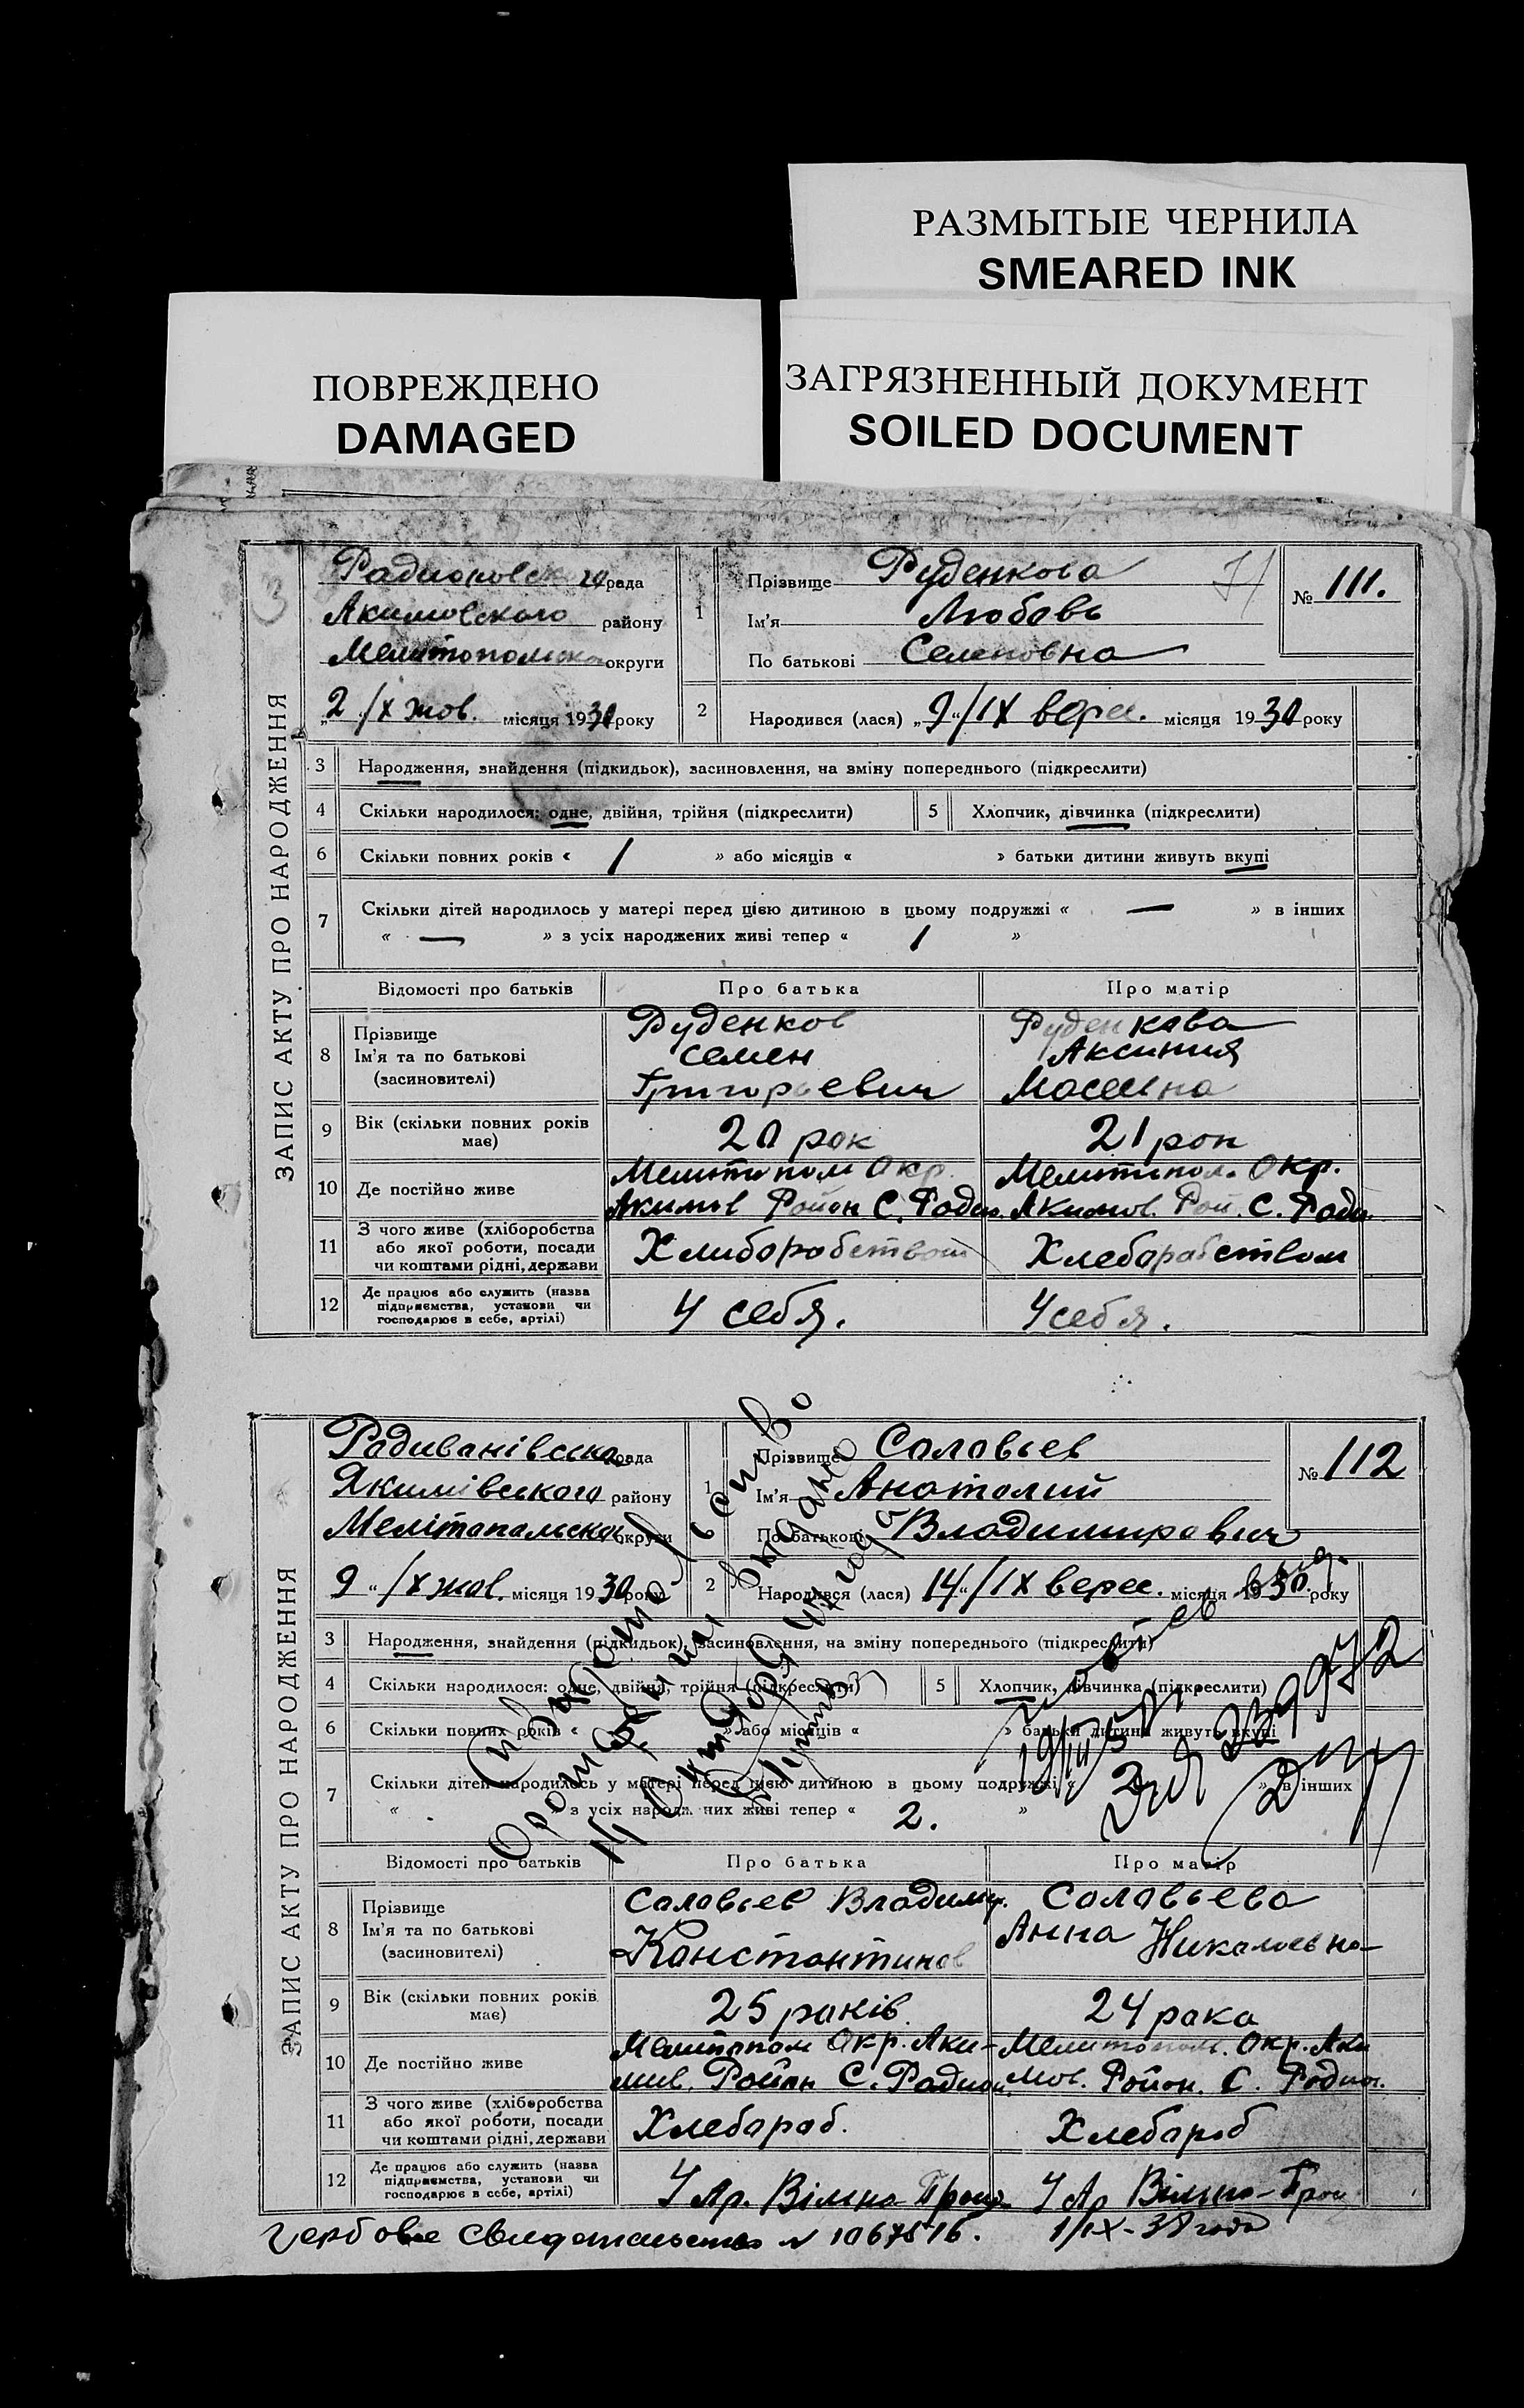 РАЗМЫТЫЕ ЧЕРНИЛА
SMEARED INK
ПОВРЕЖДЕНО
DAMAGED
ЗАГРЯЗНЕННЫЙ ДОКУМЕНТ
SOILED DOCUMENT
ЗАПИС АКТУ ПРО НАРОДЖЕННЯ
рада
Акимовского району
округи
„2 /X жов. місяця 1930 року
1 Прізвище Руденкова
Ім'я Любовь
По батькові Семеновна
№ 111.
2 Народився (лася) „9“/IX верес. місяця 1930 року
3 Народження, знайдення (підкидьок), засиновлення, на зміну попереднього (підкреслити)
4 Скільки народилося: одне, двійня, трійня (підкреслити) 5 Хлопчик, дівчинка (підкреслити)
6 Скільки повних років « 1 » або місяців « » батьки дитини живуть вкупі
7 Скільки дітей народилось у матері перед цією дитиною в цьому подружжі « — » в інших
« — » з усіх народжених живі тепер « 1 »
Відомості про батьків Про батька Про матір
8 Прізвище
Ім'я та по батькові
(засиновителі)
Руденков
Семен
Григорьевич
Руденкова
Аксиния
9 Вік (скільки повних років має) 20 рок 21 рок
10 Де постійно живе
Мелитопол Окр.
Акимов Район С. Родио.
Мелитопол. Окр.
Акимов. Рай. С. Роди
11 З чого живе (хліборобства
або якої роботи, посади
чи коштами рідні, держави
Хлиборобством
Хлебаработвом
12 Де працює або служить (назва
підприємства, установи чи
господарює в себе, артілі)
У себя.
У себя.
ЗАПИС АКТУ ПРО НАРОДЖЕННЯ
Радиванівська рада
Якимівського району
Мелітапальской округи
9 “/X жов. місяця 1930 року
1 Прізвище Саловьев
Ім'я Анатолий
По батькові Владимирович
№ 112
2 Народився (лася) 14“/IX верес. місяця 1930 року
3 Народження, знайдення (підкидьок), засиновлення, на зміну попереднього (підкреслити)
4 Скільки народилося: одне, двійня, трійня (підкреслити) 5 Хлопчик, дівчинка (підкреслити)
6 Скільки повних років « » або місяців « » батьки дитини живуть вкупі
7 Скільки дітей народилось у матері перед цією дитиною в цьому подружжі « 2 » в інших
« з усіх народжених живі тепер « 2. »
Відомості про батьків Про батька Про матір
8 Прізвище
Ім'я та по батькові
(засиновителі)
Саловьев Владимир.
Канстонтинов
Саловьева
Анна Николаевна
9 Вік (скільки повних років має) 25 раків. 24 рока
10 Де постійно живе
Мелитопол Окр. Аки-
мив. Район С. Родион.
Мелитопол. Окр. Аки
мов. Район. С. Родион.
11 З чого живе (хліборобства
або якої роботи, посади
чи коштами рідні, держави
Хлебараб.
Хлебароб
12 Де працює або служить (назва
підприємства, установи чи
господарює в себе, артілі)
У Ар. Вільна Праця
У Ар Вільна-Прац
Гербовое свидетельство N 1067516. 1/IX-38 года